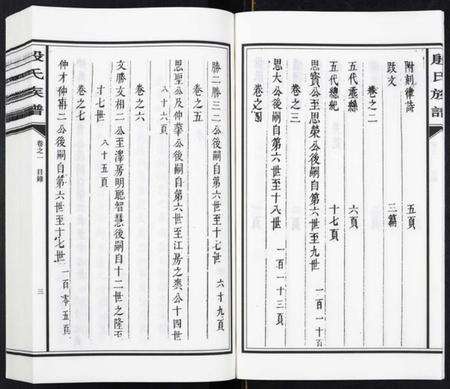 殷氏族譜
附刻律詩 五頁
跋文 三篇
卷之二
五代衰縣 六頁
五代總紀 十七頁
思賓公至思榮公後嗣自第六世至九世 一百一十頁
卷之三
思大公後嗣自第六世至十八世 一百一十三頁
卷之四
勝二勝三二公後嗣自第六世至十七世 六十九頁
卷之五
思聖公及仲華公後嗣自第六世至江房之奕公十四世
八十六頁
卷之六
文勝文相二公至澤房明聰智慧後嗣自十二世之隆至
十七世 八十五頁
卷之七
仲才仲甯二公後嗣自第六世至十七世 一百零五頁
殷氏族譜
卷之一 目錄
三